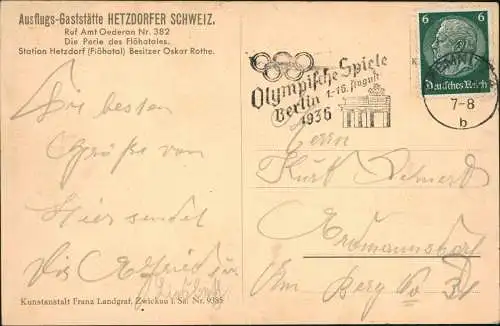 Ausflugs-Gaststätte HETZDORFER SCHWEIZ.
Ruf Amt Oederan Nr. 382
Die Perle des Flöhatales.
Station Hetzdorf (Flöhatal) Besitzer Oskar Rothe.
Die besten
Grüße von
Hier sendet
Dir
Kunstanstalt Franz Landgraf, Zwickau i. Sa. Nr. 9385
Olympische Spiele
Berlin 1.-16. August
1936
6 6
Deutsches Reich
7-8
b
Herrn
Kurt
Erdmannsdorf
Am Berg No